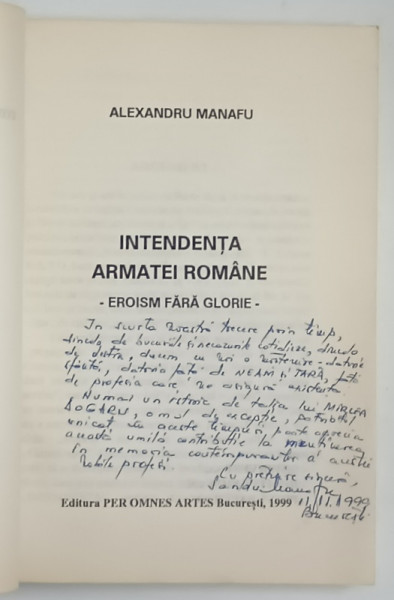 ALEXANDRU MANAFU
INTENDENȚA
ARMATEI ROMÂNE
- EROISM FĂRĂ GLORIE -
In scurta noastră trecere prin timp,
dincolo de bucuriile și necazurile cotidiene, dincolo
de toți o datorie
sfântă, datoria față de NEAM și ȚARĂ, față
de profesia care ne asigură existența.
Numai un istoric de talia lui MIRCEA
DOGARU, omul de excepție, patriotul
unicat la aceste timpuri poate aprecia
această umilă contribuție la menținerea
în memoria contemporanilor a acestei
nobile profesii.
Cu prețuire sinceră,
Sandu Manafu
Editura PER OMNES ARTES București, 1999
11.11.1999
București